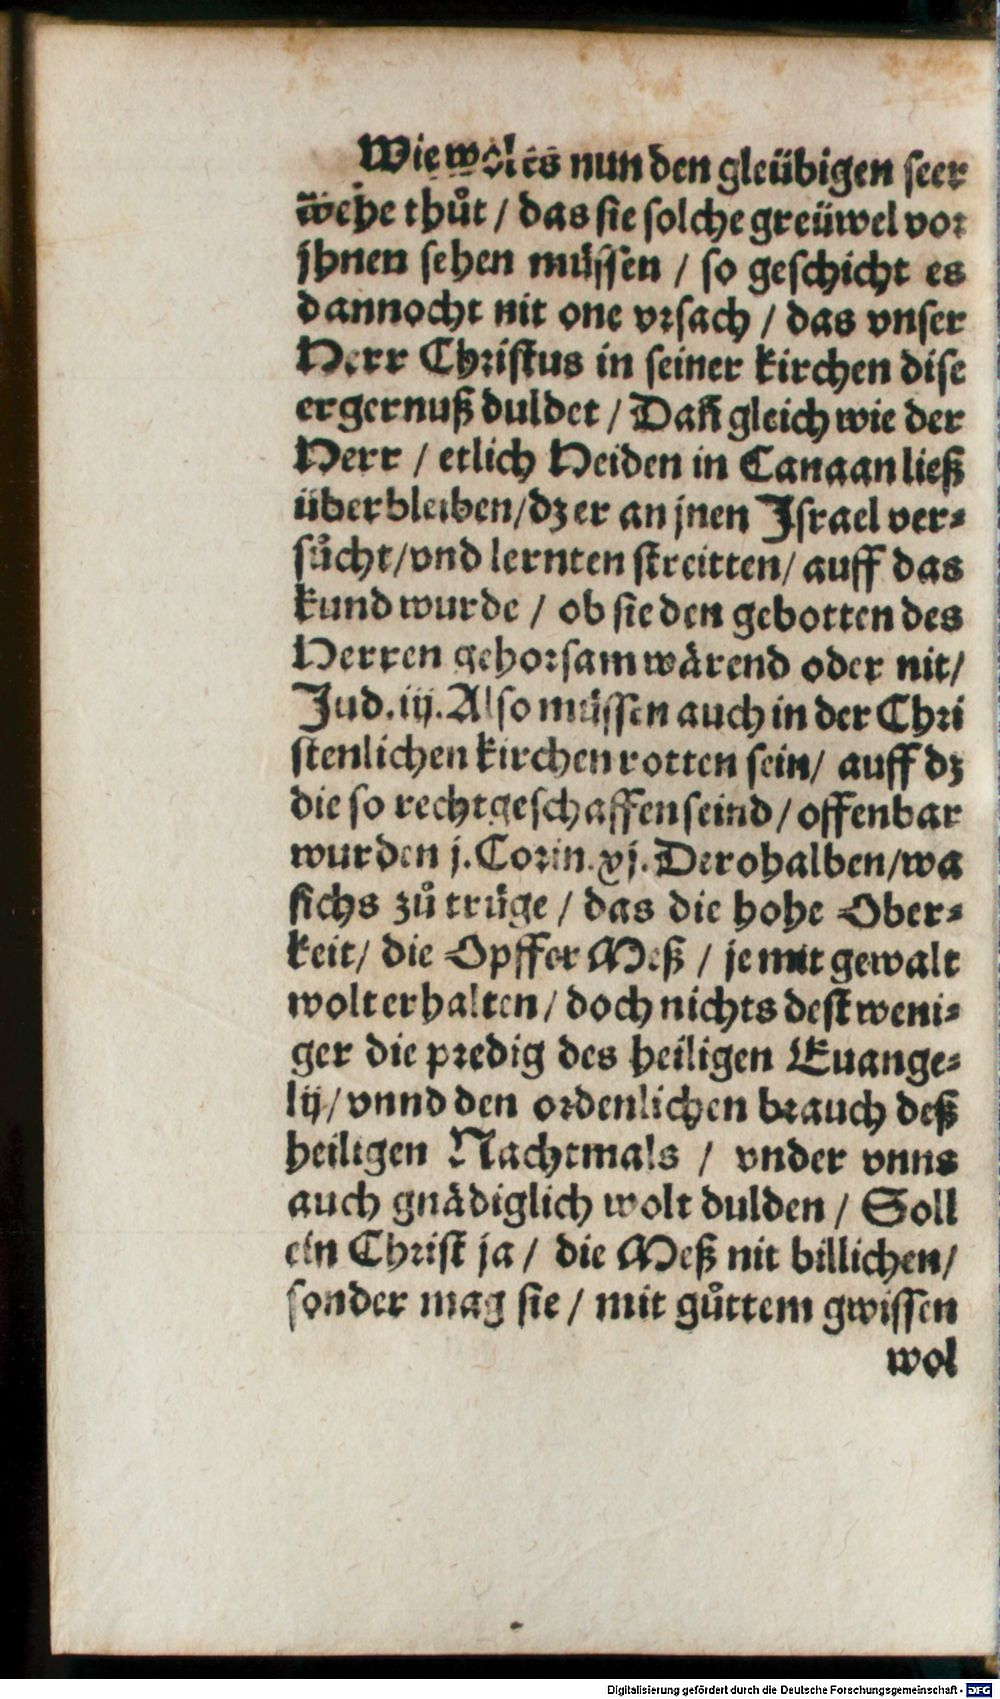 Wiewol es nun den gleübigen seer
wehe thůt / das sie solche greüwel vor
jhnen sehen müssen / so geschicht es
dannocht nit one vrsach / das vnser
Herr Christus in seiner kirchen dise
ergernuß duldet / Dañ gleich wie der
Herr / etlich Heiden in Canaan ließ
überbleiben/dz er an jnen Israel ver-
sůcht/vnd lernten streitten/ auff das
kund wurde / ob sie den gebotten des
Herren gehorsam wärend oder nit/
Jud. iij. Also müssen auch in der Chri
stenlichen kirchen rotten sein/ auff dz
die so rechtgeschaffen seind / offenbar
wurden j. Corin. xj. Derohalben/wa
sichs zů trüge / das die hohe Ober-
keit/ die Opffer Meß / je mit gewalt
wolt erhalten/ doch nichts dest weni-
ger die predig des heiligen Euange-
lij/ vnnd den ordenlichen brauch deß
heiligen Nachtmals / vnder vnns
auch gnädiglich wolt dulden / Soll
ein Christ ja / die Meß nit billichen/
sonder mag sie / mit gůttem gwissen
wol
Digitalisierung gefördert durch die Deutsche Forschungsgemeinschaft - DFG